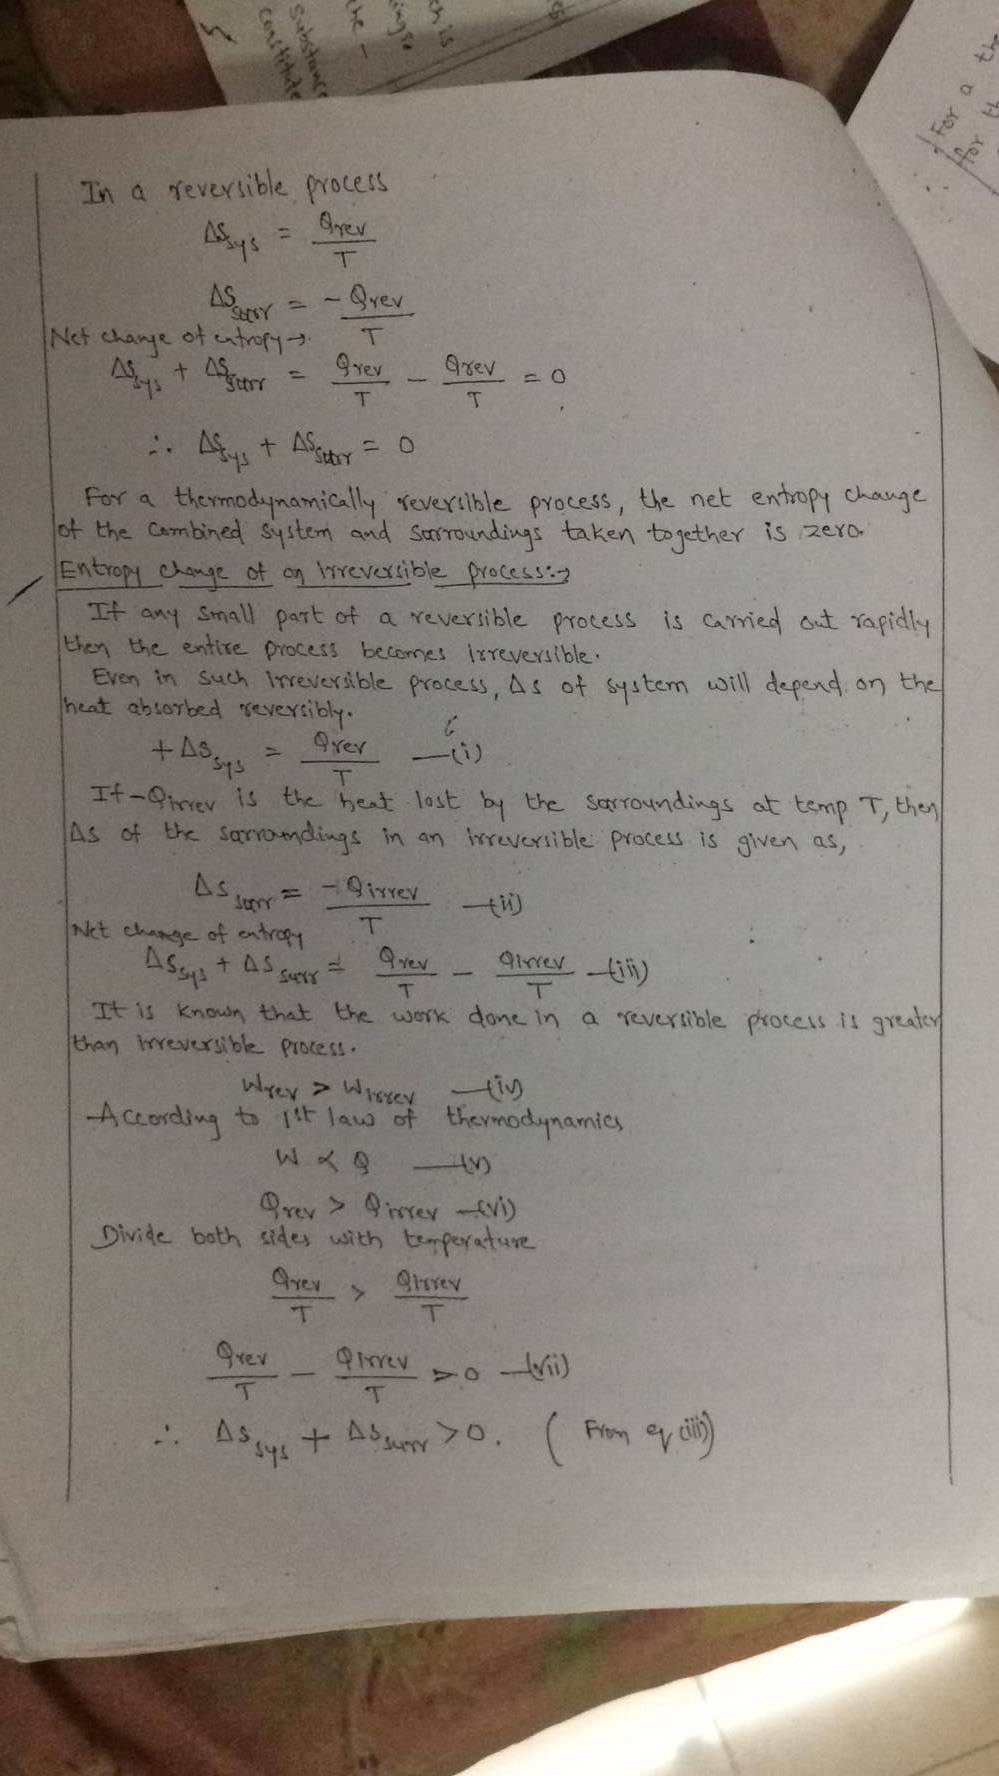 Substance
constitute
the -
ch is
For a th
for th
In a reversible process
ΔSsys = Qrev/T
ΔSsurr = -Qrev/T
Net change of entropy →
ΔSsys + ΔSsurr = Qrev/T - Qrev/T = 0
∴ ΔSsys + ΔSsurr = 0
For a thermodynamically reversible process, the net entropy change
of the combined system and sorroundings taken together is zero.
Entropy change of an Irreversible process:→
If any small part of a reversible process is carried out rapidly
then the entire process becomes irreversible.
Even in such irreversible process, Δs of system will depend on the
heat absorbed reversibly.
+ΔSsys = Qrev/T —(i)
If -Qirrev is the heat lost by the sorroundings at temp T, then
Δs of the sorroundings in an irreversible process is given as,
ΔSsorr = -Qirrev/T —(ii)
Net change of entropy
ΔSsys + ΔSsurr = Qrev/T - Qirrev/T —(iii)
It is known that the work done in a reversible process is greater
than irreversible process.
Wrev > Wirrev —(iv)
According to 1st law of thermodynamics
W ∝ Q —(v)
Qrev > Qirrev —(vi)
Divide both sides with temperature
Qrev/T > Qirrev/T
Qrev/T - Qirrev/T > 0 —(vii)
∴ ΔSsys + ΔSsurr > 0. (From eq (iii))